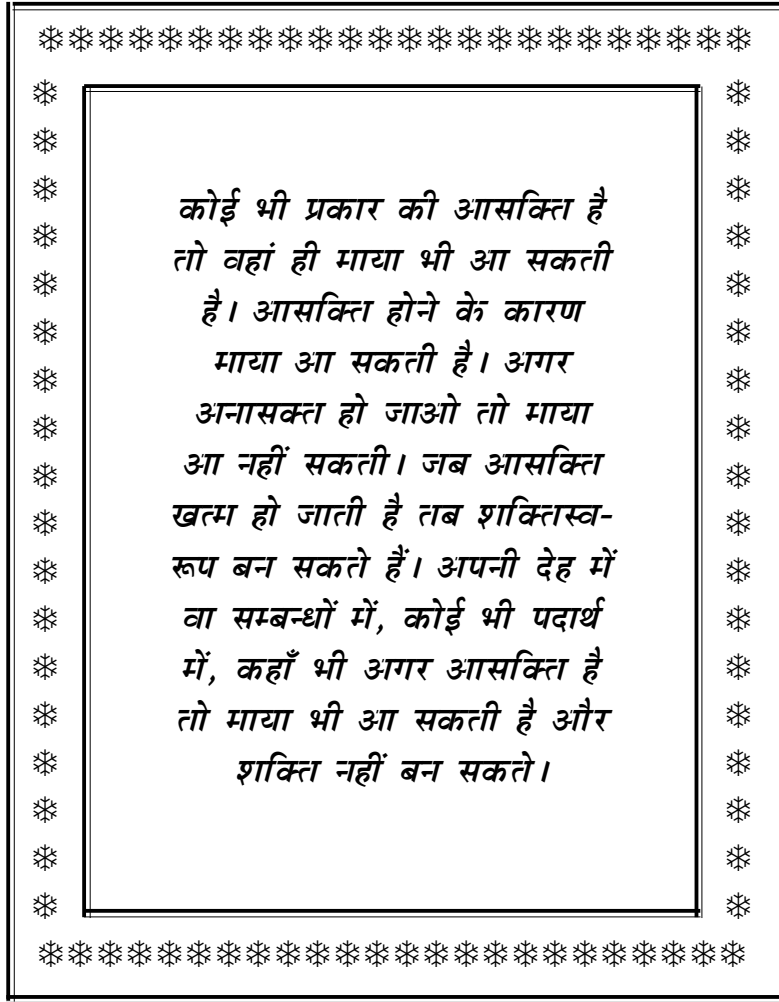 कोई भी प्रकार की आसक्ति है
तो वहां ही माया भी आ सकती
है। आसक्ति होने के कारण
माया आ सकती है। अगर
अनासक्त हो जाओ तो माया
आ नहीं सकती। जब आसक्ति
खत्म हो जाती है तब शक्तिस्व-
रूप बन सकते हैं। अपनी देह में
वा सम्बन्धों में, कोई भी पदार्थ
में, कहाँ भी अगर आसक्ति है
तो माया भी आ सकती है और
शक्ति नहीं बन सकते।